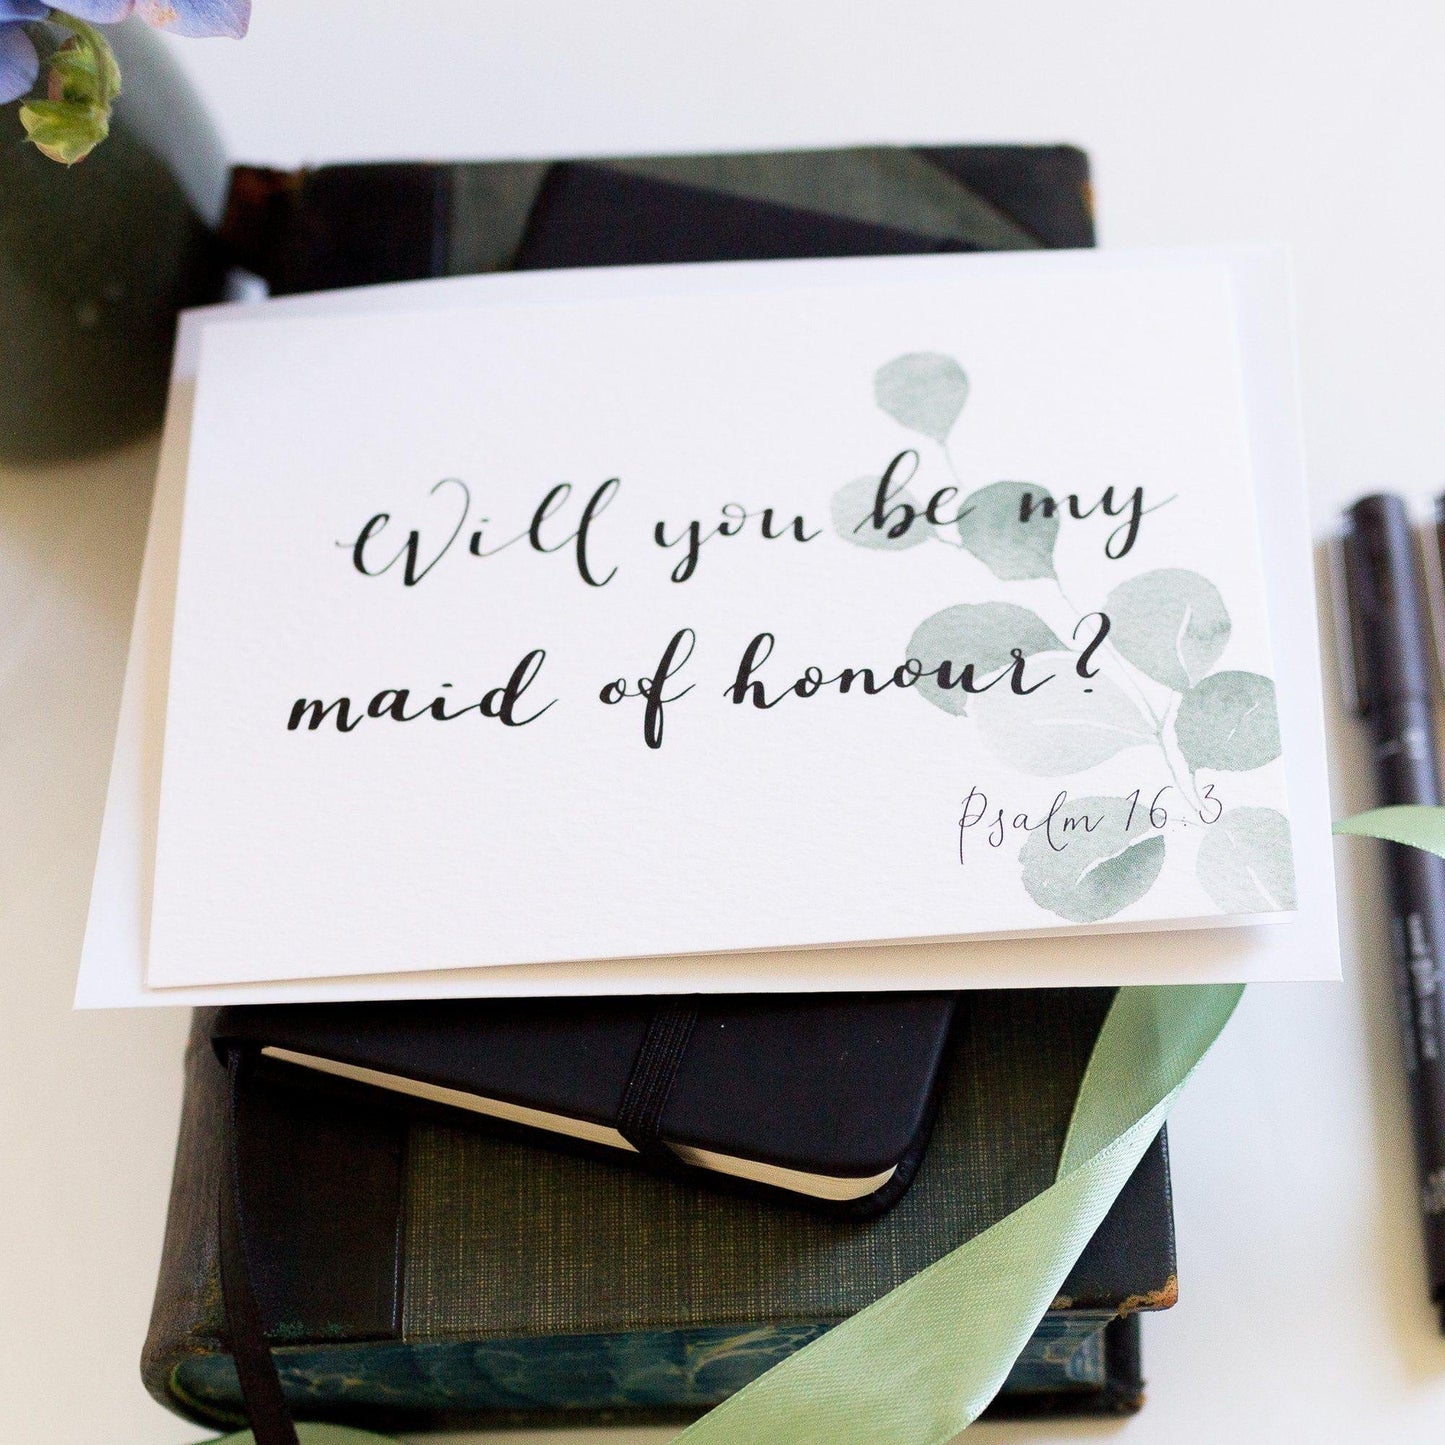 Will you be my
maid of honour?
Psalm 16:3